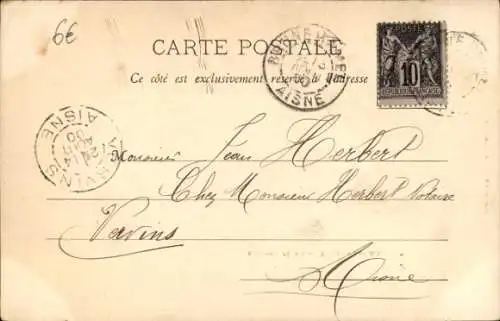 6€
CARTE POSTALE
Ce côté est exclusivement réservé à l'adresse
POSTES
10
REPUBLIQUE FRANÇAISE
AISNE
VERVINS
AISNE
Monsieur Jean Herbert
Chez Monsieur Herbert Notaire
Vervins
Aisne